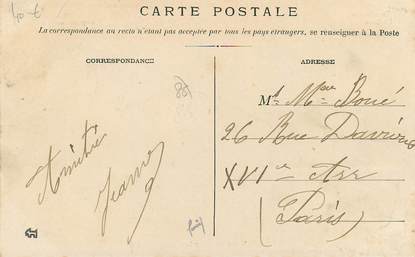 40 €
CARTE POSTALE
La correspondance au recto n'étant pas acceptée par tous les pays étrangers, se renseigner à la Poste
CORRESPONDANCE
ADRESSE
Amitiés
Jeanne
Boué
26 Rue
XVIe Arr
(Paris)